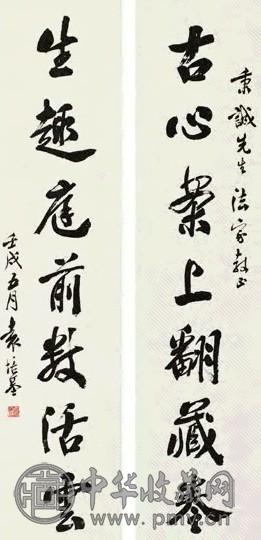 秉誠先生法家教正
古心案上翻藏卷
生趣庭前数活雲
壬戌五月袁培基
中华收藏网